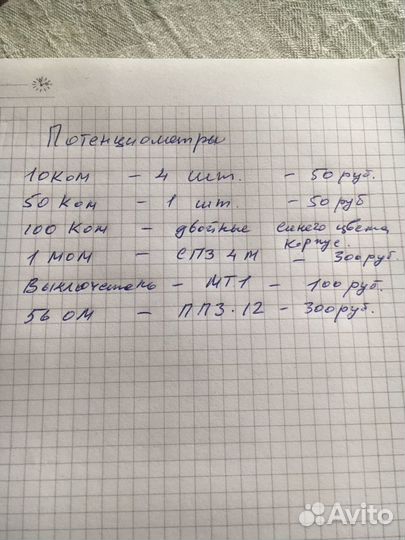 Потенциометры
10 Ком - 4 шт. - 50 руб.
50 Ком - 1 шт. - 50 руб
100 Ком - двойные синего цвета корпус.
1 МОМ - СПЗ 4М - 300 руб
Выключатель - МТ1 - 100 руб.
56 ОМ - ППЗ-12 - 300 руб.
Avito